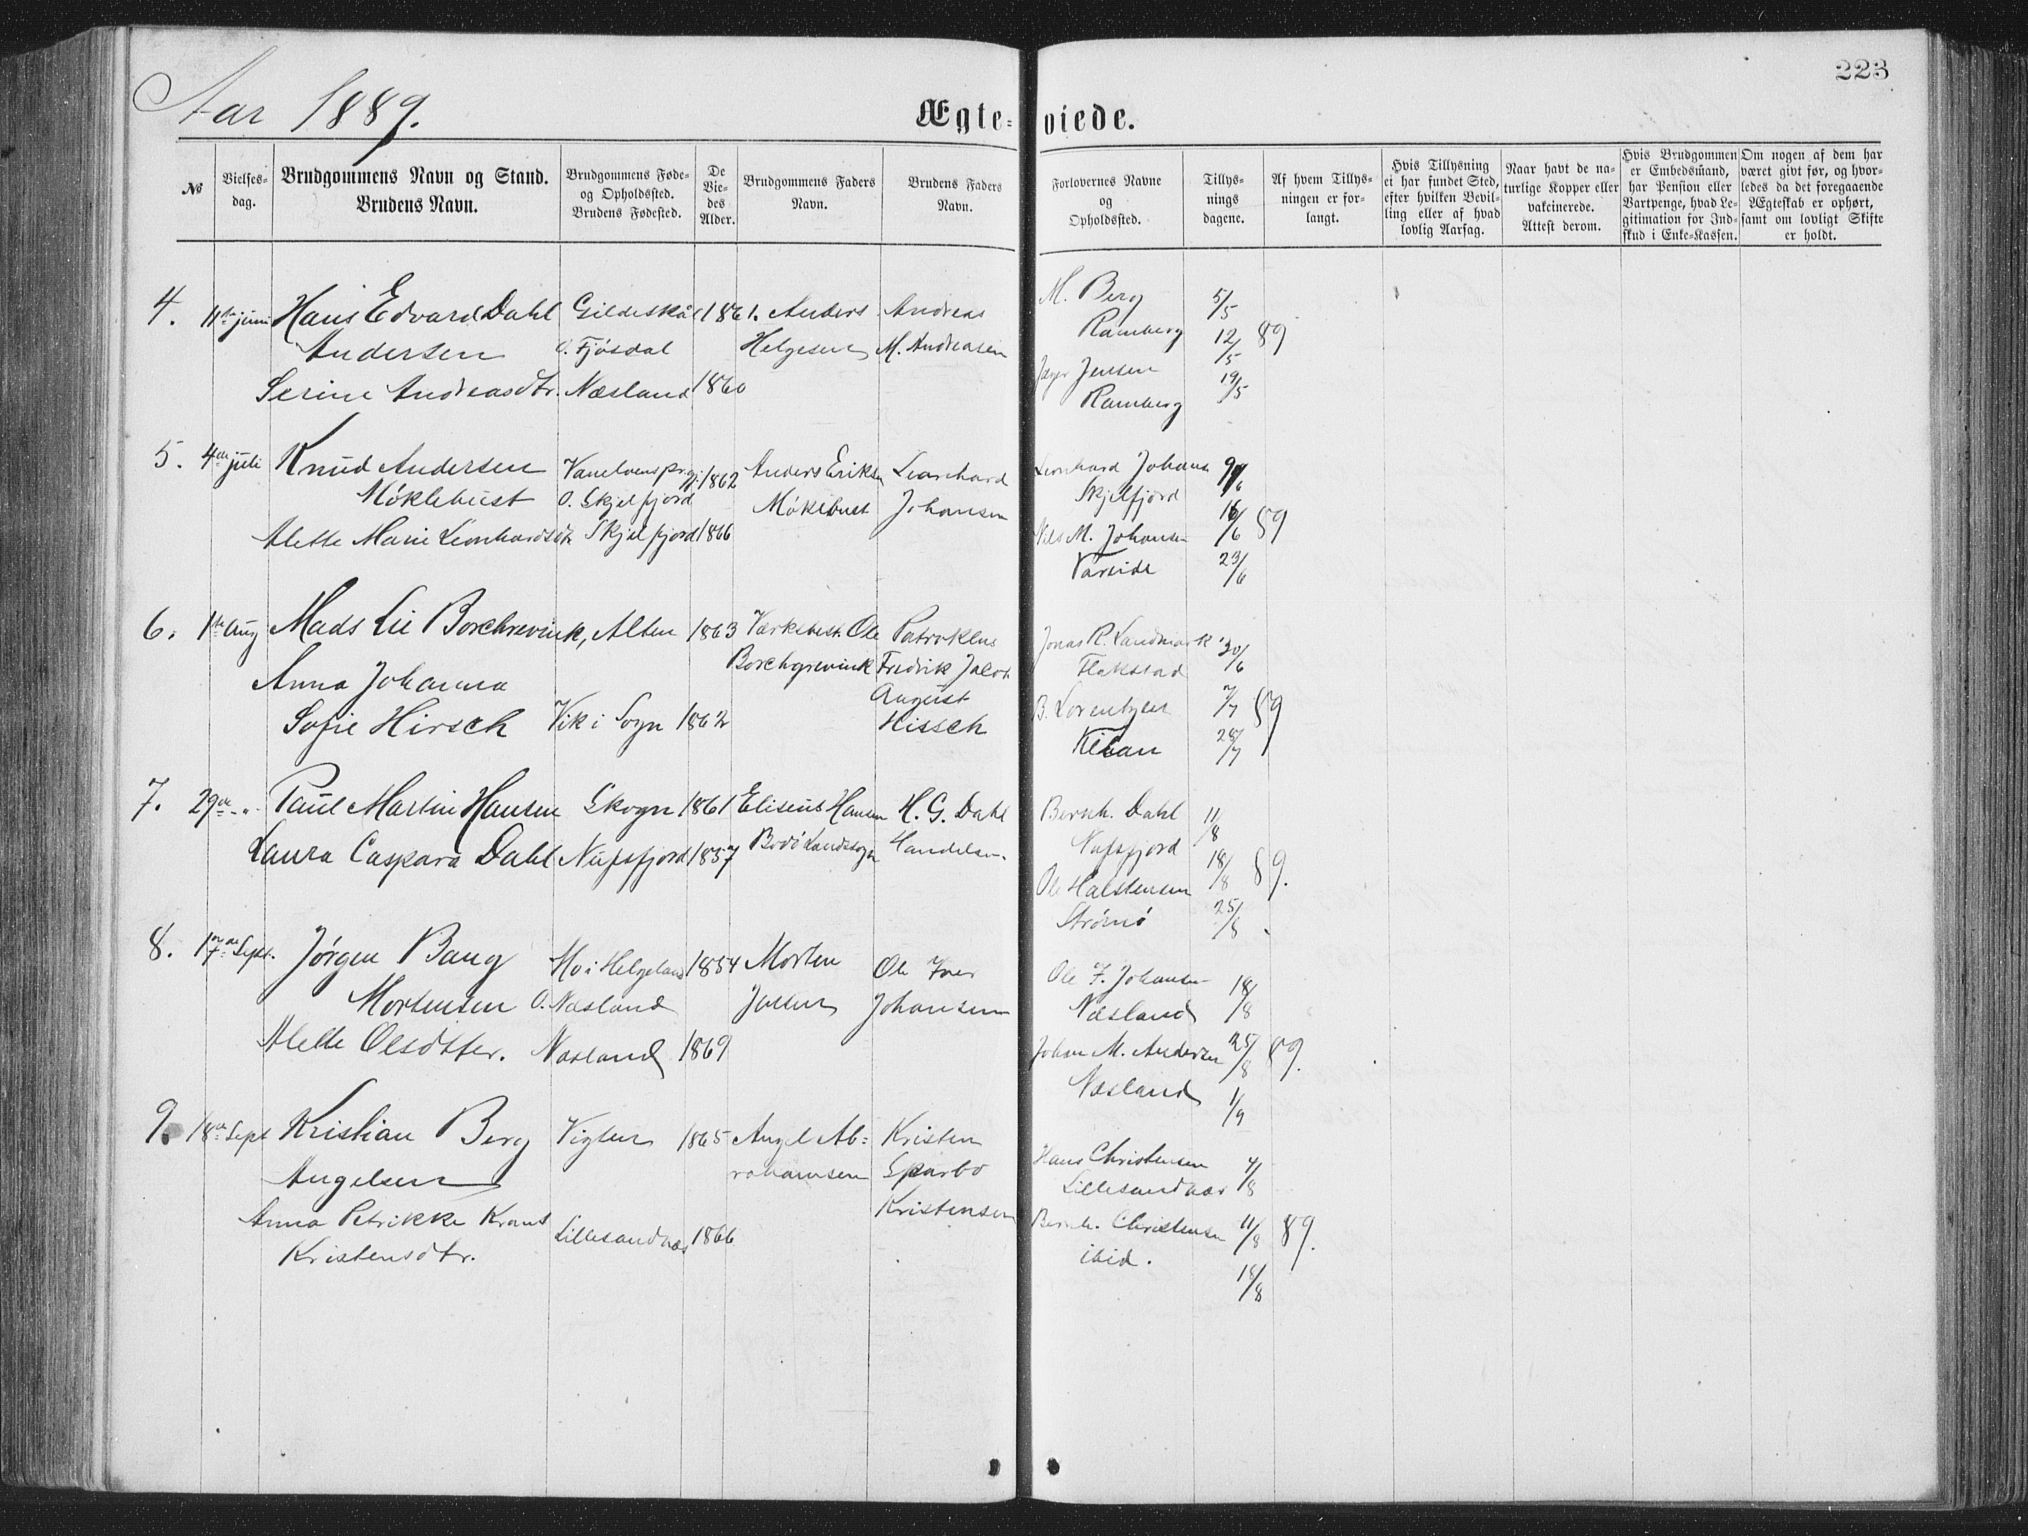 Aar 1889.
Ægteviede.
223
№
Vielsesdag.
Brudgommens Navn og Stand.
Brudens Navn.
Brudgommens Føde- og Opholdssted.
Brudens Fødested.
De Viedes Alder.
Brudgommens Faders Navn.
Brudens Faders Navn.
Forlovernes Navne og Opholdssted.
Tillysningsdagene.
Af hvem Tillysningen er forlangt.
Hvis Tillysning ei har fundet Sted, efter hvilken Bevilling eller af hvad lovlig Aarsag.
Naar havt de naturlige Kopper eller vakcinerede. Attest derom.
Hvis Brudgommen er Embedsmand, har Pension eller Vartpenge, hvad Legitimation for Indskud i Enke-Kassen.
Om nogen af dem har været givt før, og hvorledes da det foregaaende Ægteskab er ophørt, samt om lovligt Skifte er holdt.
4. 11te juni Hans Edvard Dahl Gildeskål 1861. Anders Andreas M. Berg 5/5
Andersen O. Fjösdal Helgesen M. Andreasen Ramberg 12/5 89
Serine Andreasdtr. Næsland 1860 Jensen 19/5
Ramberg
5. 4de juli Knud Andersen 1862 Anders Eriksen Leonhard Leonhard Johans 9/6
Möklebust O. Skjelfjord Möklebust Johansen Skjelfjord 16/6 89
Alette Marie Leonhardsdtr Skjelfjord 1866 Nils M. Johansen 23/6
Vareide
6. 1ste Aug Mads Lie Borchrevink, Alten 1863 Ole Patroklus Jonas R. Landmark 30/6
Borchgrevink Fredrik Jacob Flakstad
Anna Johanna August B. Lorentzen 7/7 89
Sofie Hirsch Vik i Sogn 1862 Hissch Kilan 28/7
7. 29de -"- Paul Martin Hansen Skogn 1861 Eliseus Hansen H. G. Dahl Bernh. Dahl 11/8
Laura Caspara Dahl Nufsfjord 1857 Bodö Landssogn Handelsm. Nufsfjord 18/8 89.
Ole Halstensen 25/8
Strömö
8. 17de Sept. Jörgen Bang Mo i Helgeland 1854 Morten Ole Iver Ole F. Johansen 18/8
Mortensen O. Næsland Johansen Næsland
Alette Olsdtter. Næsland 1869 Johan M. Andersen 25/8 89.
Næsland 1/9
9. 18de Sept Kristian Berg Vigten 1865 Angel Ab= Kristen Hans Christensen 4/8
Angelsen rahamsen Sparbo Lillesandnæs
Anna Petrikke Kristensen Bernh. Christensen 11/8 89.
Kristensdtr. Lillesandnæs 1866 ibid. 18/8